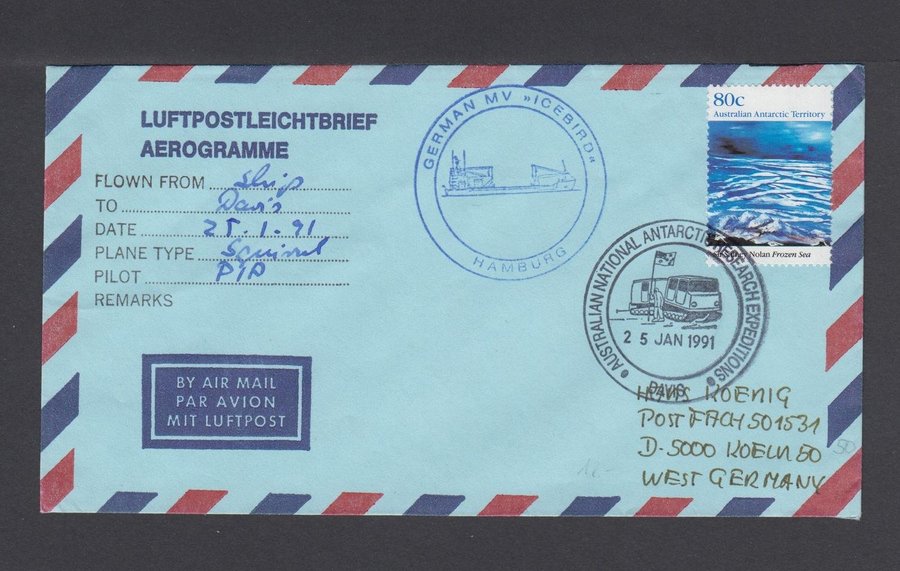 LUFTPOSTLEICHTBRIEF
AEROGRAMME
FLOWN FROM Ship
TO Davis
DATE 25.1.91
PLANE TYPE Squirrel
PILOT
REMARKS
BY AIR MAIL
PAR AVION
MIT LUFTPOST
GERMAN MV »ICEBIRD«
HAMBURG
80c
Australian Antarctic Territory
Nolan Frozen Sea
AUSTRALIAN NATIONAL ANTARCTIC RESEARCH EXPEDITIONS
25 JAN 1991
DAVIS
HANS KOENIG
POSTFACH 501531
D-5000 KOELN 50
WEST GERMANY
50